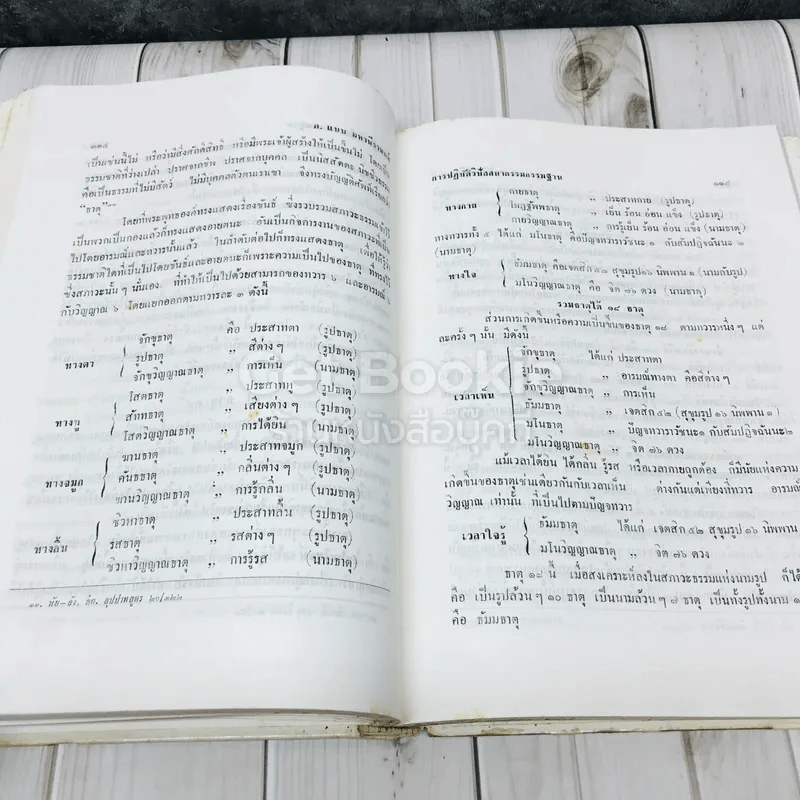 ๑๑๘
ส. แบบ มหาศิริ
เป็นเช่นนี้ไม่ หรือว่ามีสิ่งศักดิ์สิทธิ์ หรือมีพระเจ้าผู้สร้างให้เป็นขึ้นไม่
ธรรมชาติที่ว่างเปล่า ปราศจากชีพ ปราศจากบุคคล เป็นนิสสัตตะ
คือเป็นธรรมที่ไม่มีสัตว์ ไม่มีบุคคลตัวตนเราเขา จึงทรงบัญญัติศัพท์เรียก
"ธาตุ"
โดยที่พระพุทธองค์ทรงแสดงเรื่องขันธ์ ซึ่งรวบรวมสภาวะธรรม
เป็นพวกเป็นกองแล้วก็ทรงแสดงอายตนะ อันเป็นกิจการงานของสภาวะ
ไปโดยอารมณ์และทวารนั้นแล้ว ในลำดับต่อไปก็ทรงแสดงธาตุ เพื่อให้รู้
ธรรมชาติใดที่เป็นไปโดยขันธ์และอายตนะก็เพราะความเป็นไปของธาตุ ที่ทรงไว้
ซึ่งสภาวะนั้น ๆ นั่นเอง ที่ทำให้เป็นไปด้วยสามารถของทวาร ๖ และอารมณ์
กับวิญญาณ ๖ โดยแยกออกตามทวารละ ๓ ดังนี้
จักขุธาตุ คือ ประสาทตา (รูปธาตุ)
ทางตา รูปธาตุ ,, สีต่าง ๆ (รูปธาตุ)
จักขุวิญญาณธาตุ ,, การเห็น (นามธาตุ)
โสตธาตุ ,, ประสาทหู (รูปธาตุ)
ทางหู สัททธาตุ ,, เสียงต่าง ๆ (รูปธาตุ)
โสตวิญญาณธาตุ ,, การได้ยิน (นามธาตุ)
ฆานธาตุ ,, ประสาทจมูก (รูปธาตุ)
ทางจมูก คันธธาตุ ,, กลิ่นต่าง ๆ (รูปธาตุ)
ฆานวิญญาณธาตุ ,, การรู้กลิ่น (นามธาตุ)
ชิวหาธาตุ ,, ประสาทลิ้น (รูปธาตุ)
ทางลิ้น รสธาตุ ,, รสต่าง ๆ (รูปธาตุ)
ชิวหาวิญญาณธาตุ ,, การรู้รส (นามธาตุ)
การปฏิบัติวิปัสสนากรรมกรรมฐาน
๑๑๙
กายธาตุ ,, ประสาทกาย (รูปธาตุ)
ทางกาย โผฏฐัพพธาตุ ,, เย็น ร้อน อ่อน แข็ง (รูปธาตุ)
กายวิญญาณธาตุ ,, การรู้เย็น ร้อน อ่อน แข็ง (นามธาตุ)
ทางทวารทั้ง ๕ ได้แก่ มโนธาตุ คือปัญจทวาราวัชนะ ๑ กับสัมปฏิจฉันนะ ๒
(นามธาตุ)
ทางใจ ธัมมธาตุ คือเจตสิก ๕๒ สุขุมรูป ๑๖ นิพพาน ๑ (นามกับรูป)
มโนวิญญาณธาตุ คือ จิต ๗๖ ดวง (นามธาตุ)
รวมธาตุได้ ๑๘ ธาตุ
ส่วนการเกิดขึ้นหรือความเป็นขึ้นของธาตุ ๑๘ ตามทวารหนึ่ง ๆ แต่
ละครั้ง ๆ นั้น มีดังนี้
จักขุธาตุ ได้แก่ ประสาทตา
รูปธาตุ ,, อารมณ์ทางตา คือสีต่าง ๆ
เวลาเห็น จักขุวิญญาณธาตุ ,, การเห็น
ธัมมธาตุ ,, เจตสิก ๕๒ (สุขุมรูป ๑๖ นิพพาน ๑)
มโนธาตุ ,, ปัญจทวาราวัชนะ ๑ กับสัมปฏิจฉันนะ ๒
มโนวิญญาณธาตุ ,, จิต ๗๖ ดวง
แม้เวลาได้ยิน ได้กลิ่น รู้รส หรือเวลากายถูกต้อง ก็มีนัยแห่งความ
เกิดขึ้นของธาตุเช่นเดียวกันกับเวลาเห็น ต่างกันแต่เพียงที่ทวาร อารมณ์
วิญญาณ เท่านั้น ที่เป็นไปตามปัญจทวาร
ธัมมธาตุ ได้แก่ เจตสิก ๕๒ สุขุมรูป ๑๖ นิพพาน
เวลาใจรู้
มโนวิญญาณธาตุ ,, จิต ๗๖ ดวง
ธาตุ ๑๘ นี้ เมื่อสงเคราะห์ลงในสภาวะธรรมแห่งนามรูป ก็ได้
คือ เป็นรูปล้วน ๆ ๑๐ ธาตุ เป็นนามล้วน ๆ ๗ ธาตุ เป็นทั้งรูปทั้งนาม ๑
คือ ธัมมธาตุ
GetBookie
ร้านหนังสือบุ๊คกี้